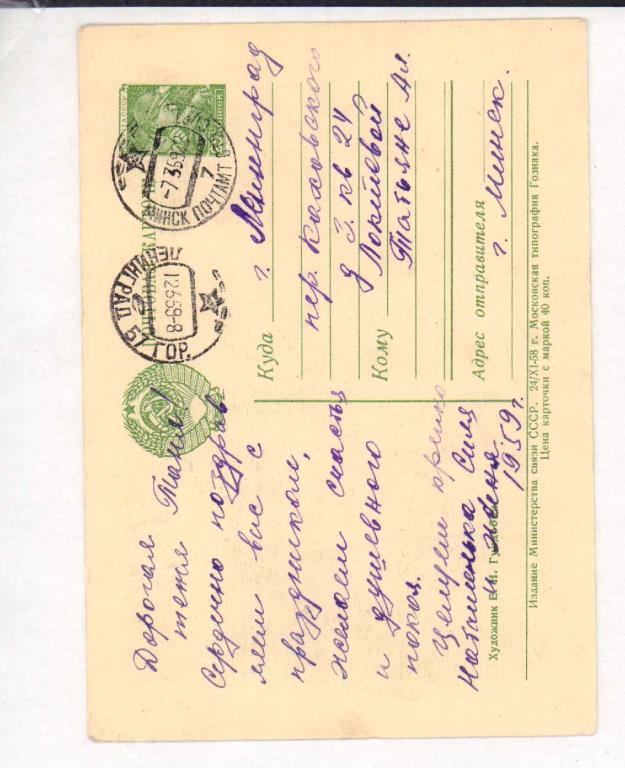 Дорогая
тетя Таня!
Сердечно поздрав
ляем вас с
праздником,
желаем счастья
и душевного
покоя.
Целуем крепко
Наташенька Силя
и Женя.
1959 г.
ПОЧТОВАЯ КАРТОЧКА
МИНСК ПОЧТАМТ
-7.3.59
ЛЕНИНГРАД
12.3.59-8
ГОР.
Куда г. Ленинград
пер. Каховского
д 3. кв 24
Кому
Татьяне Ал.
Адрес отправителя
г. Минск.
Художник Е. Н.
Издание Министерства связи СССР. 24/XI-58 г. Московская типография Гознака.
Цена карточки с маркой 40 коп.